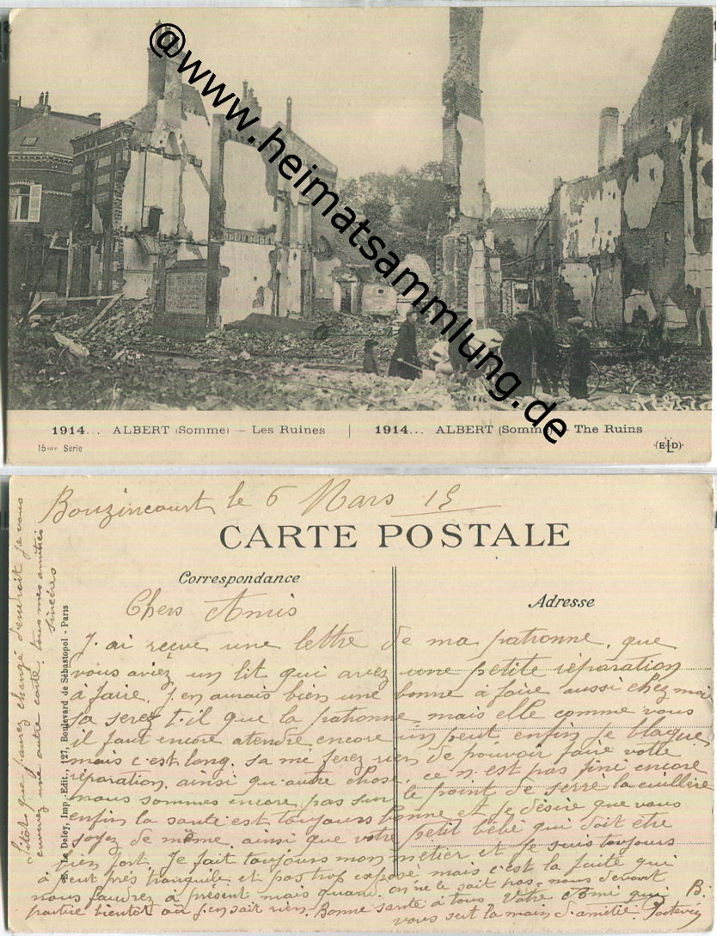 @www.heimatsammlung.de
1914... ALBERT (Somme) - Les Ruines | 1914... ALBERT (Somme) - The Ruins
15me Série
ELD
Bouzincourt le 6 Mars 15
CARTE POSTALE
Correspondance
Adresse
Chers Amis
J'ai reçue une lettre de ma patronne, que
vous aviez un lit qui aviez une petite réparation
à faire. J'en aurais bien une bonne à faire aussi chez moi
sa serez t-il que la patronne mais elle comme vous
il faut encore atendre encore un peut enfin je blague
mais c'est long. sa me ferez rien de pouvoir faire votre
réparation. ainsi qu'autre chose. ce n'est pas fini encore
nous sommes encore pas sur le point de serré la cuillère
enfin la santé est toujours bonne et je désire que vous
soyez de même. ainsi que votre petit bébé qui doit être
bien fort. Je fait toujours mon métier et je suis toujours
à peut près tranquile et pas trop exposé mais c'est la suite qui
nous faudrez à présent mais quand. on ne le sait pas. nous devont
partire bientôt où j'en sait rien. Bonne santé à tous Votre Ami qui B.
vous sert la main d'amitié.
Sitôt que j'aurez changé d'endroit je vous
enverrez une autre carte. tous mes amitiés
sincères
Le Deley, Imp.-Edit., 127, Boulevard de Sébastopol - Paris